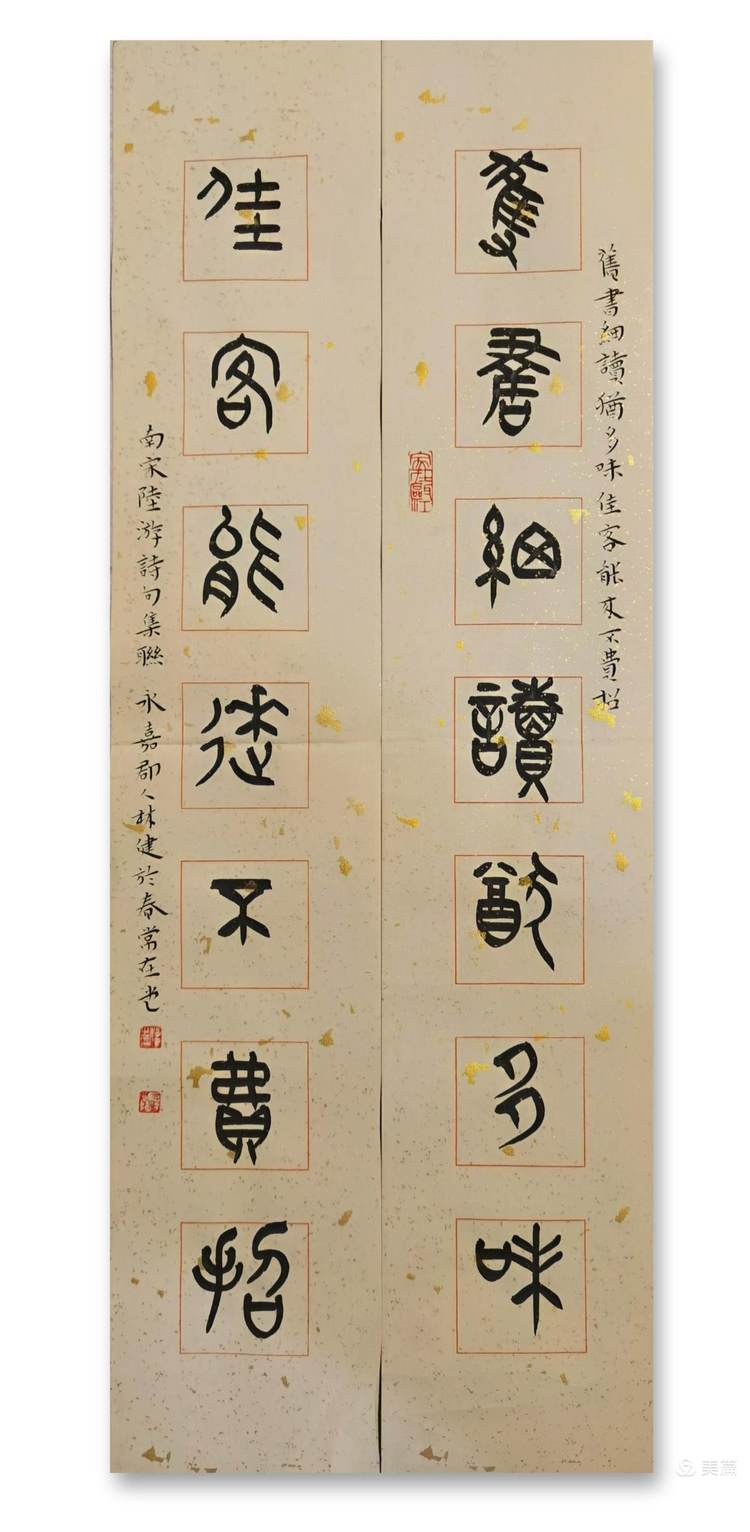 舊書細讀猶多味佳客能來不費招
舊書細讀猶多味
佳客能徠不費招
南宋陸游詩句集聯 永嘉郡人林健於春常在堂
美篇